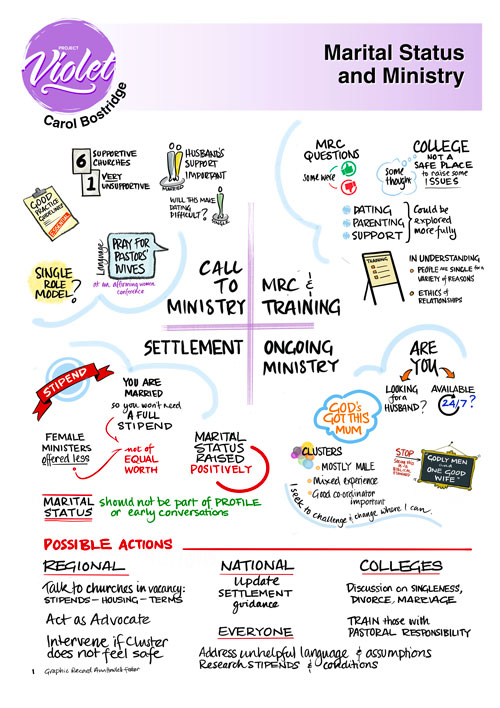 PROJECT
Violet
Carol Bostridge
Marital Status
and Ministry
6 SUPPORTIVE
CHURCHES
1 VERY
UNSUPPORTIVE
HUSBAND'S
SUPPORT
IMPORTANT
MARRIED
WILL THIS MAKE
DATING
DIFFICULT?
GOOD
PRACTICE
GUIDELINES
SINGLE
ROLE
MODEL?
Language
PRAY FOR
PASTORS'
WIVES
at an affirming women
conference
CALL
TO
MINISTRY
MRC
QUESTIONS
some were
COLLEGE
NOT A
SAFE PLACE
to raise some
ISSUES
some
thought
DATING
PARENTING
SUPPORT
Could be
explored
more fully
TRAINING
IN UNDERSTANDING
PEOPLE ARE SINGLE for a
VARIETY OF REASONS
ETHICS of
RELATIONSHIPS
MRC &
TRAINING
SETTLEMENT
STIPEND
YOU ARE
MARRIED
so you won't need
A FULL
STIPEND
FEMALE
MINISTERS
offered less
not of
EQUAL
WORTH
MARITAL
STATUS
RAISED
POSITIVELY
MARITAL
STATUS
should not be part of PROFILE
or early conversations
ONGOING
MINISTRY
ARE
YOU
LOOKING
for a
HUSBAND?
AVAILABLE
24/7?
GOD'S
GOT THIS
MUM
CLUSTERS
MOSTLY MALE
Mixed experience
Good co-ordinator
important
I seek to challenge & change where I can.
STOP
"GODLY MEN
and
ONE GOOD
WIFE"
POSSIBLE ACTIONS
REGIONAL
Talk to churches in vacancy:
STIPENDS - HOUSING - TERMS
Act as Advocate
Intervene if Cluster
does not feel safe
NATIONAL
Update
SETTLEMENT
guidance
EVERYONE
Address unhelpful language & assumptions
Research STIPENDS & conditions
COLLEGES
Discussion on SINGLENESS,
DIVORCE, MARRIAGE
TRAIN those with
PASTORAL RESPONSIBILITY
1 Graphic Record